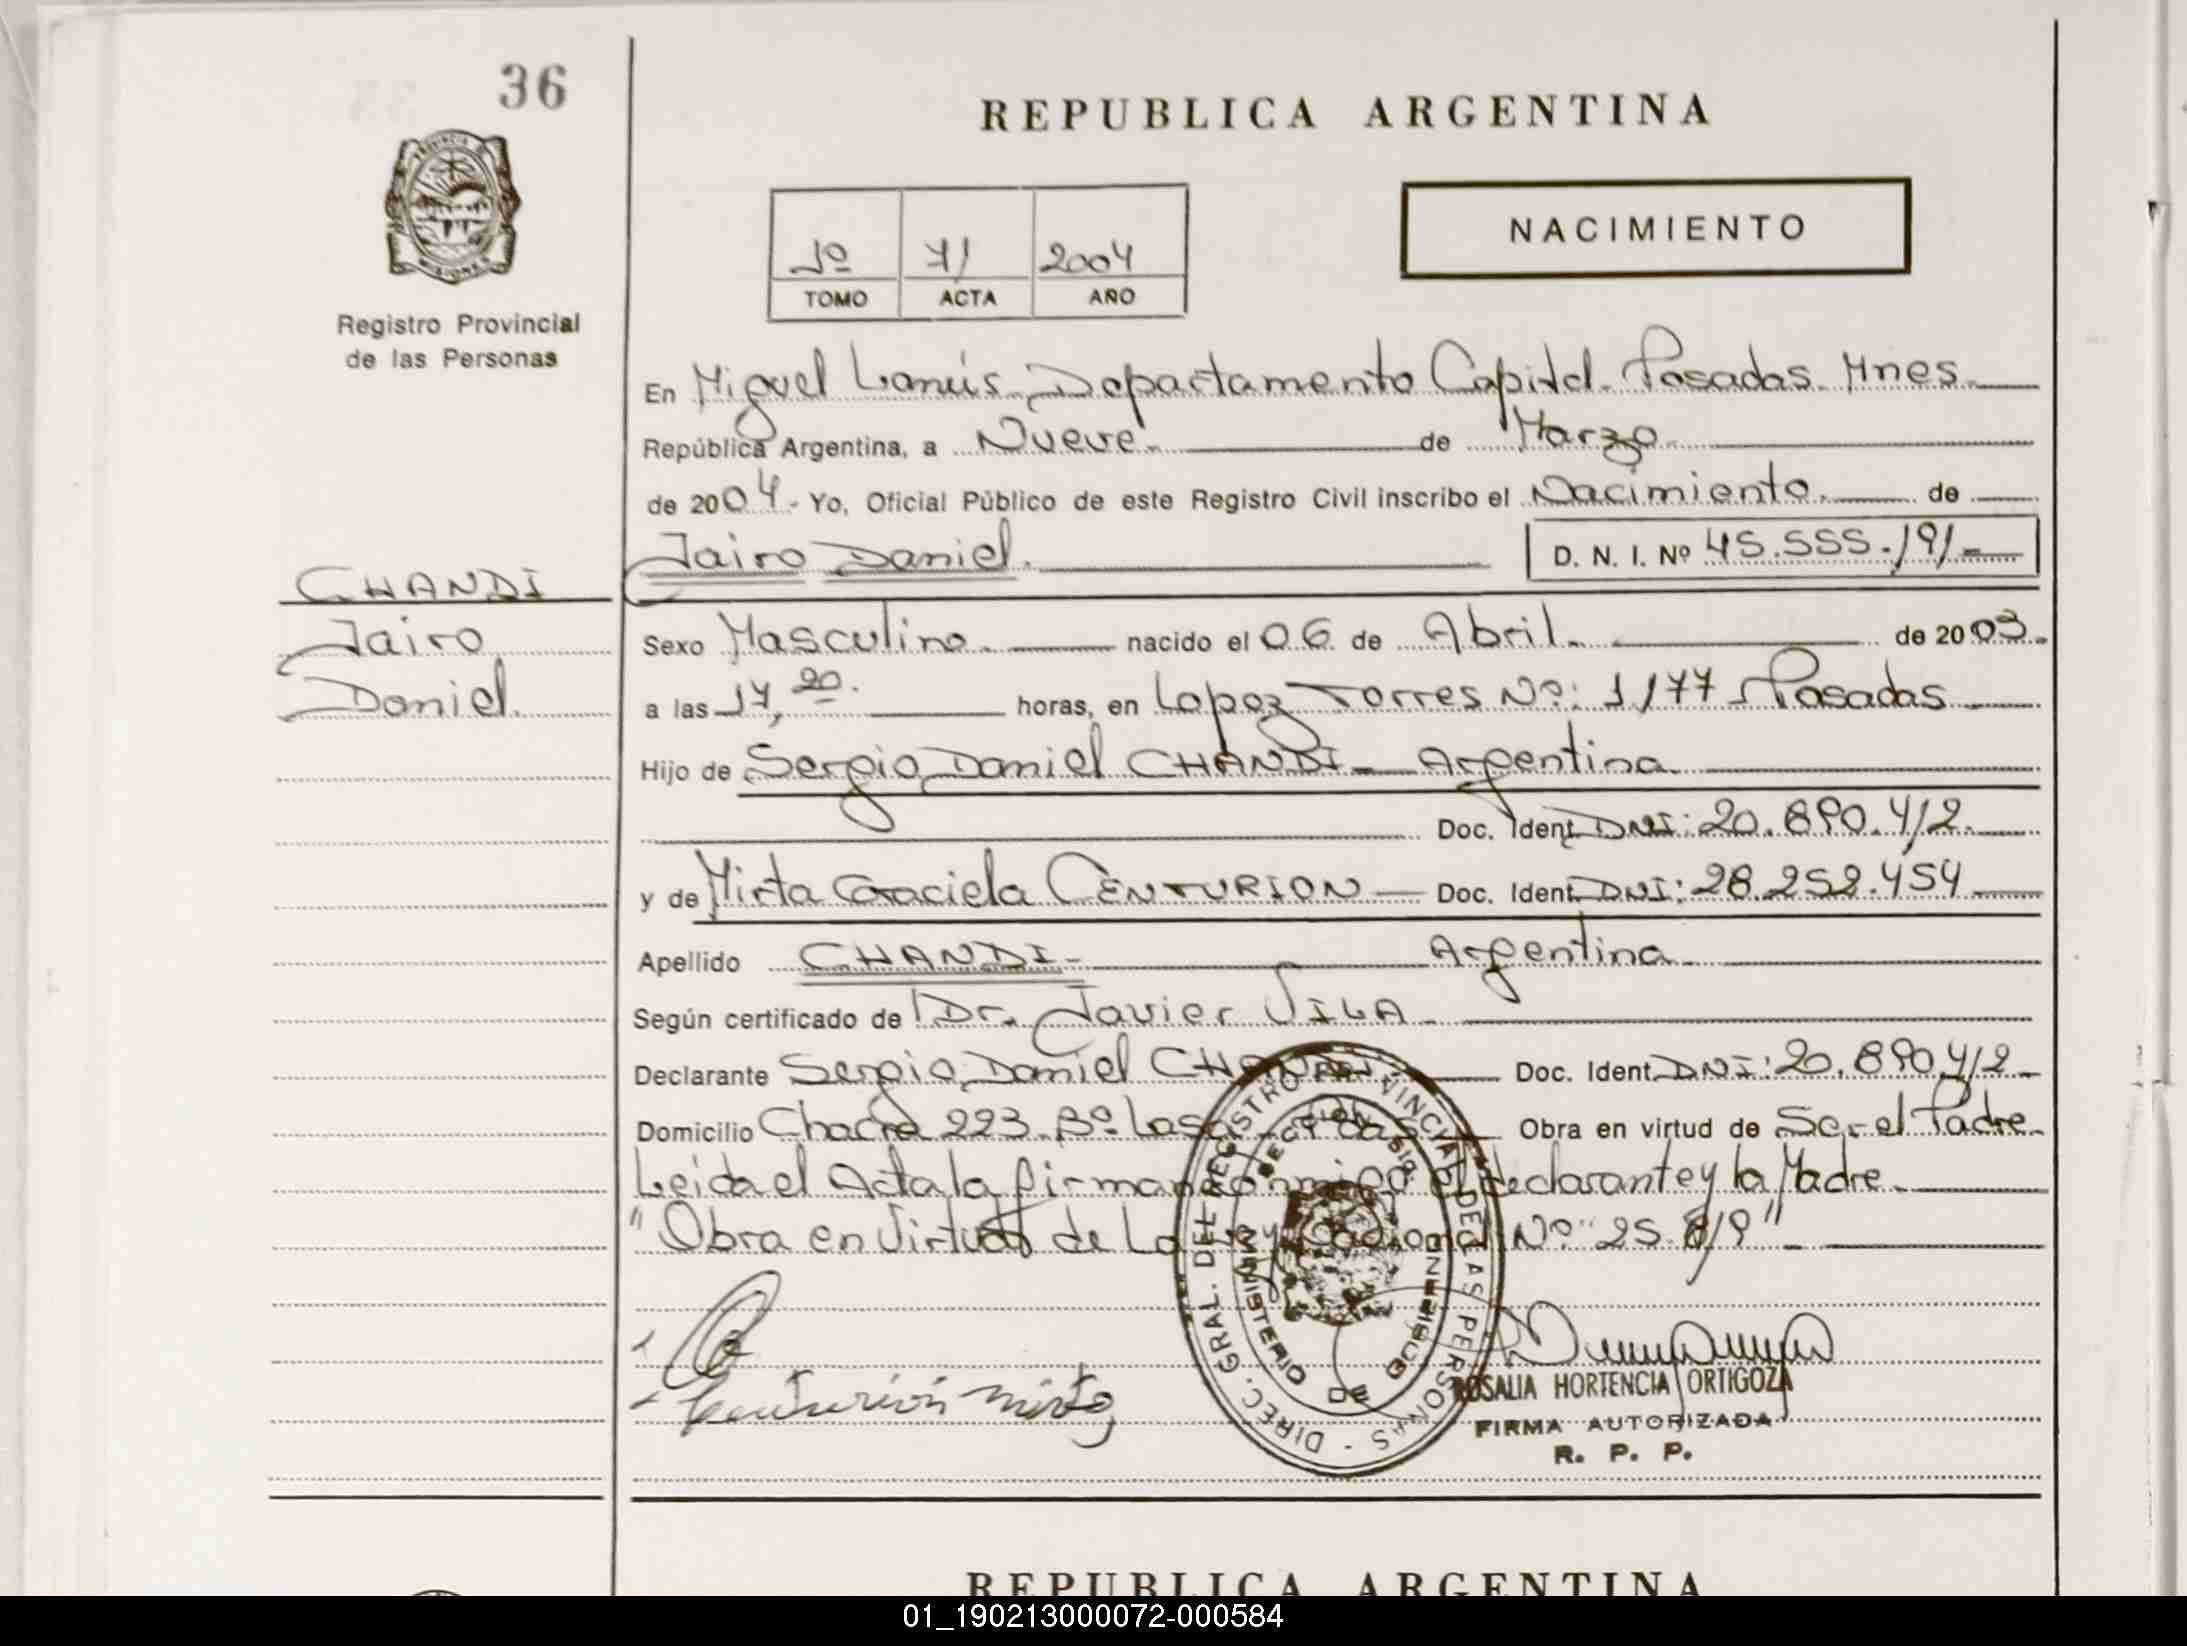 36
REPUBLICA ARGENTINA
PROVINCIA DE MISIONES
Registro Provincial
de las Personas
1º 71 2004
TOMO ACTA AÑO
NACIMIENTO
En Miguel Lanús - Departamento Capital - Posadas - Mnes -
República Argentina, a Nueve - de Marzo -
de 2004 - Yo, Oficial Público de este Registro Civil inscribo el Nacimiento - de
Jairo Daniel - D. N. I. Nº 45.555.191 -
CHANDI
Jairo
Daniel.
Sexo Masculino - nacido el 06 de Abril - de 2003 -
a las 17,20. horas, en Lopez Torres Nº: 1177 - Posadas
Hijo de Sergio Daniel CHANDI - Argentina
Doc. Ident. DNI: 20.890.412 -
y de Mirta Graciela CENTURION - Doc. Ident. DNI: 28.252.454
Apellido CHANDI - Argentina
Según certificado de Dr. Javier VILA -
Declarante Sergio Daniel CHANDI - Doc. Ident. DNI: 20.890.412 -
Domicilio Chacra 223 - Bº Las Obra en virtud de Ser el Padre -
Leida el Acta la firman conmigo el declarante y la Madre -
"Obra en Virtud de La Ley Nacional Nº: 25.819" -
DIREC. GRAL. DEL REGISTRO PROVINCIAL DE LAS PERSONAS -
MINISTERIO DE GOBIERNO
Centurión Mirta
ROSALIA HORTENCIA ORTIGOZA
FIRMA AUTORIZADA
R. P. P.
REPUBLICA ARGENTINA
01_190213000072-000584